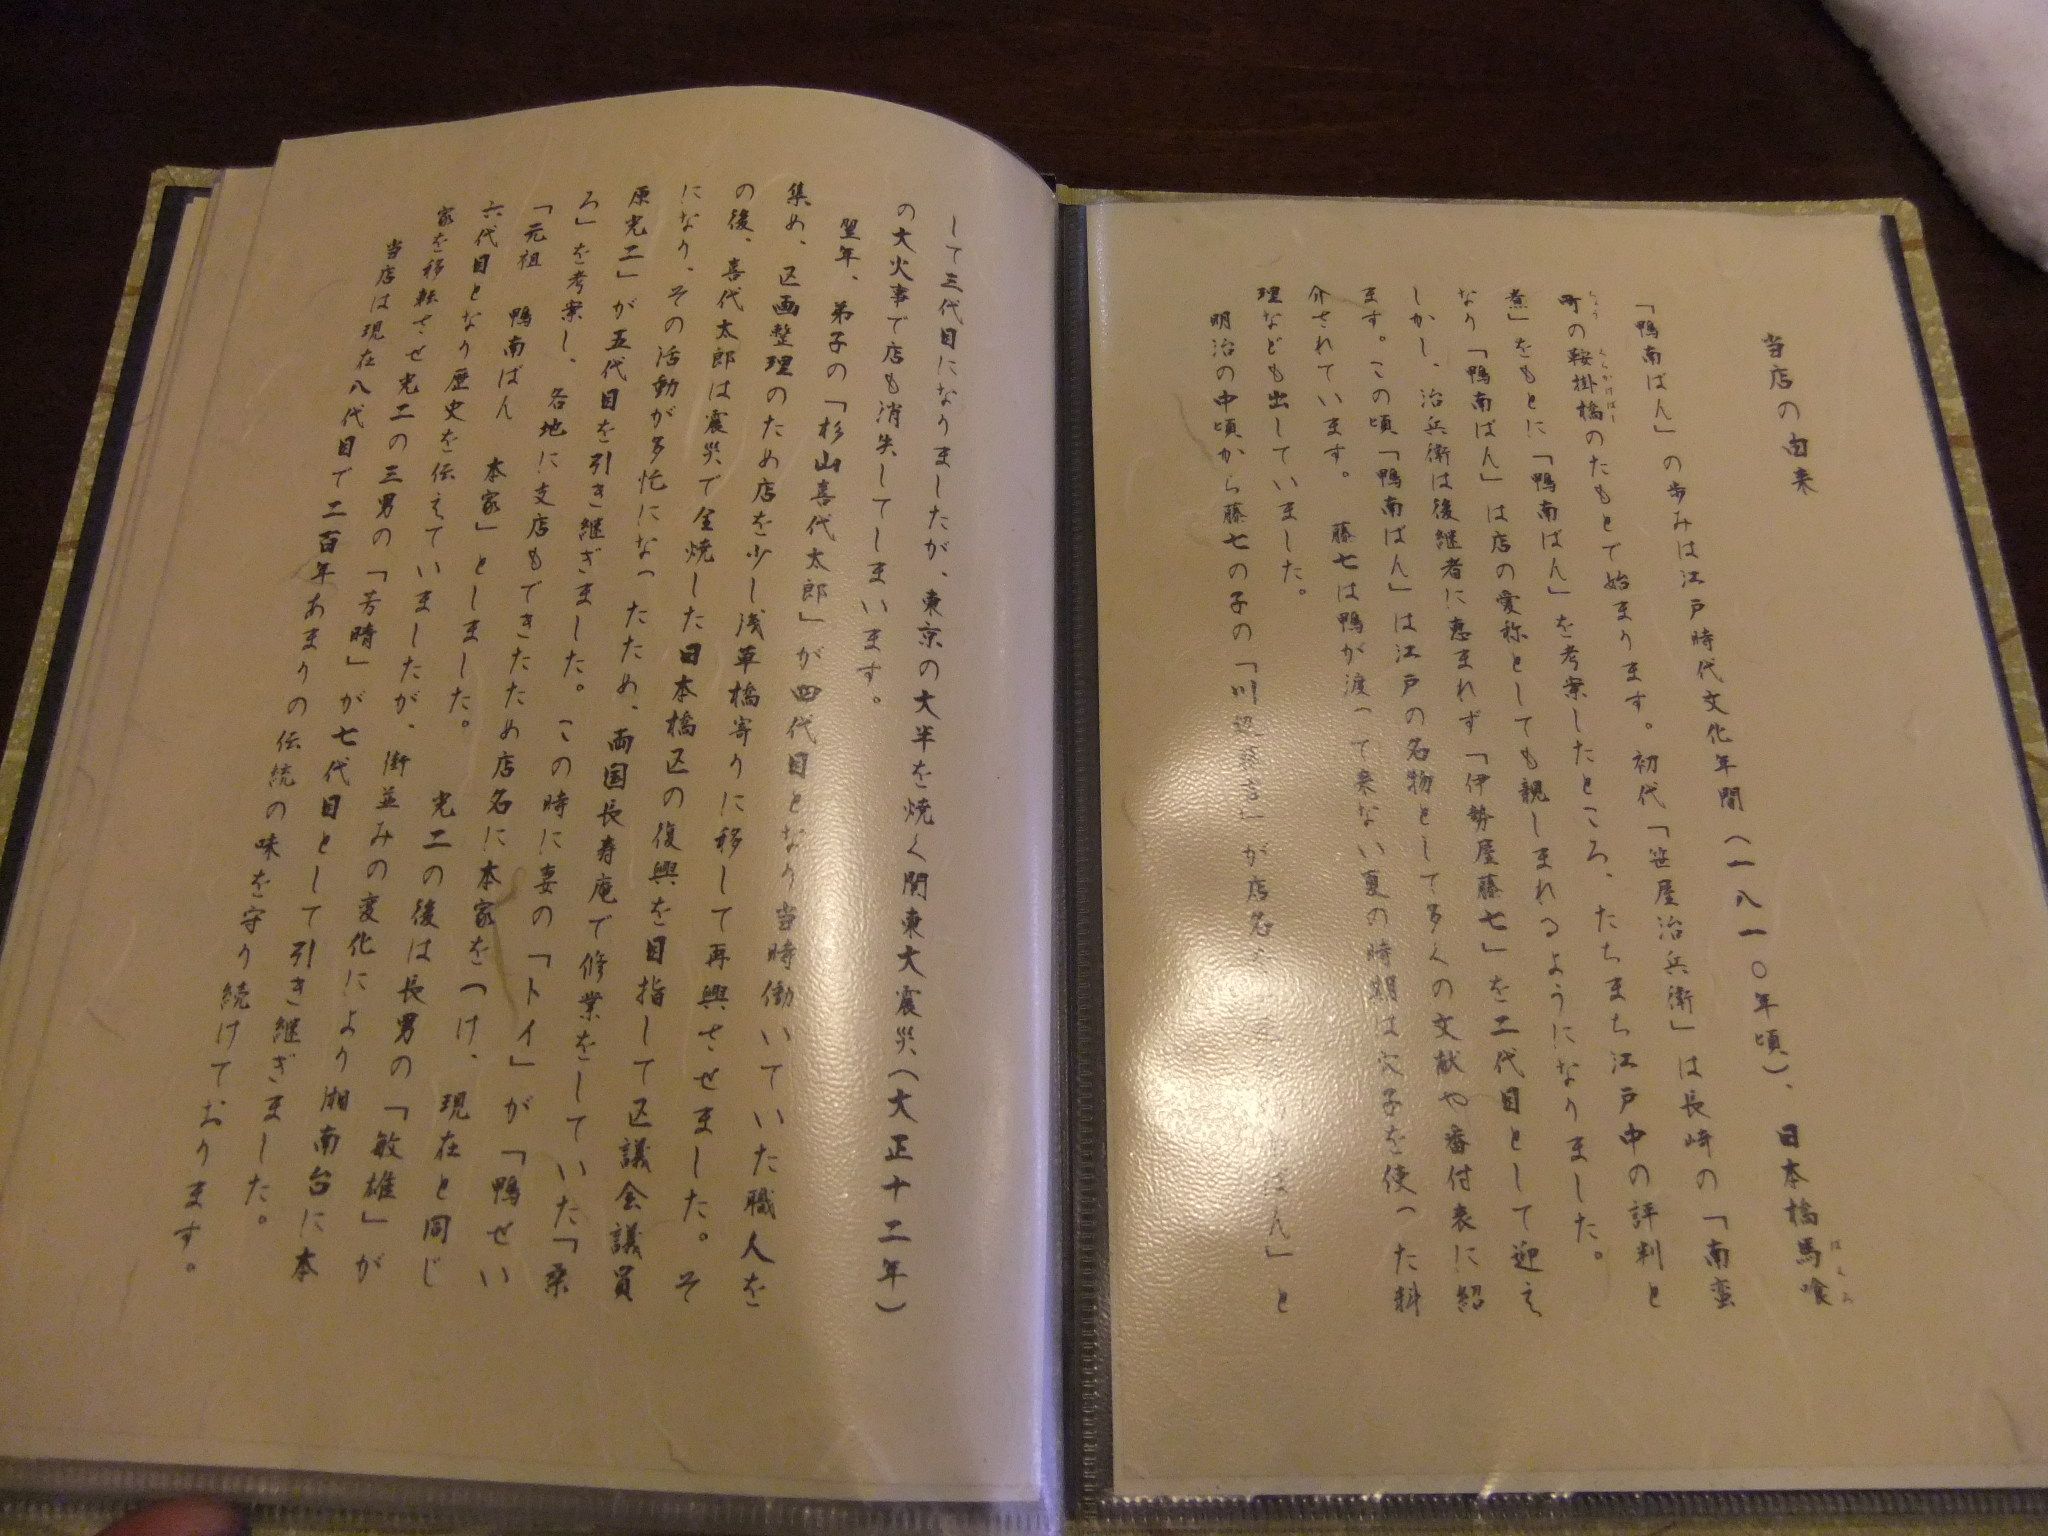 当店の由来
「鴨南ばん」の歩みは江戸時代文化年間(一八一〇年頃)、日本橋馬喰
ばくろ
町の鞍掛橋のたもとで始まります。初代「笹屋治兵衛」は長崎の「南蛮
ちょう
くらかけばし
煮」をもとに「鴨南ばん」を考案したところ、たちまち江戸中の評判と
なり「鴨南ばん」は店の愛称としても親しまれるようになりました。
しかし、治兵衛は後継者に恵まれず「伊勢屋藤七」を二代目として迎え
ます。この頃「鴨南ばん」は江戸の名物として多くの文献や番付表に紹
介されています。 藤七は鴨が渡って来ない夏の時期は穴子を使った料
理なども出していました。
明治の中頃から藤七の子の「川辺 吉」が店名を ばん」と
して三代目になりましたが、東京の大半を焼く関東大震災(大正十二年)
の大火事で店も消失してしまいます。
翌年、弟子の「杉山喜代太郎」が四代目となり当時働いていた職人を
集め、区画整理のため店を少し浅草橋寄りに移して再興させました。そ
の後、喜代太郎は震災で全焼した日本橋区の復興を目指して区議会議員
になり、その活動が多忙になったため、両国長寿庵で修業をしていた「桑
原光二」が五代目を引き継ぎました。この時に妻の「トイ」が「鴨せい
ろ」を考案し、各地に支店もできたため店名に本家をつけ、現在と同じ
「元祖 鴨南ばん 本家」としました。 光二の後は長男の「敏雄」が
六代目となり歴史を伝えていましたが、街並みの変化により湘南台に本
家を移転させ光二の三男の「芳時」が七代目として引き継ぎました。
当店は現在八代目で二百年あまりの伝統の味を守り続けております。